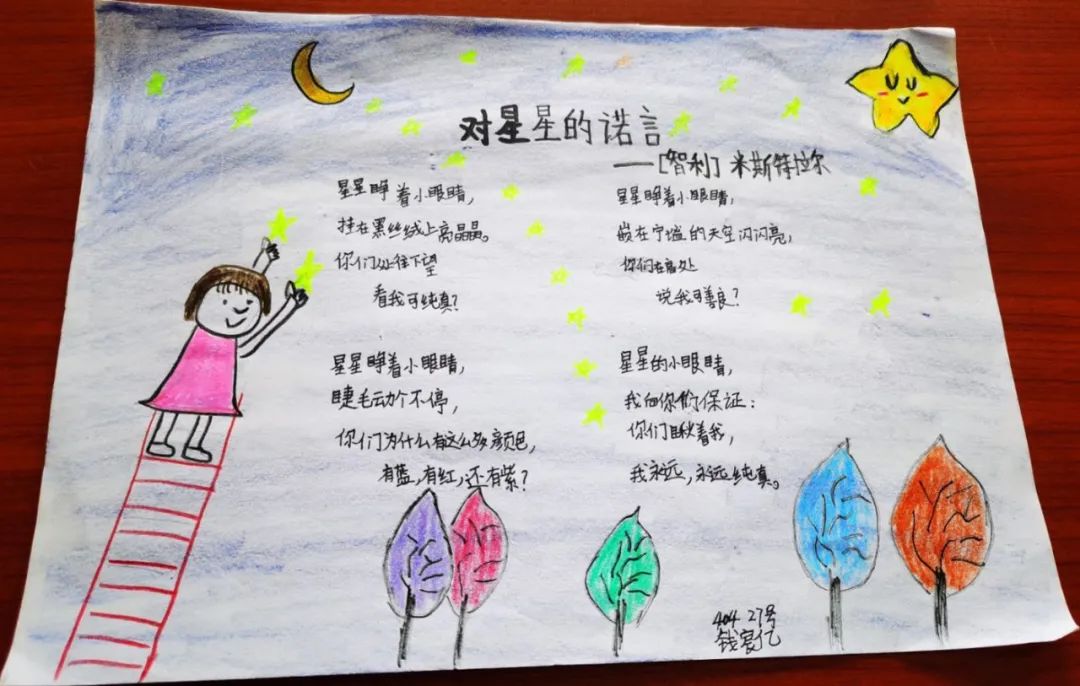 对星星的诺言
——[智利] 米斯特拉尔
星星睁着小眼睛,
挂在黑丝绒上亮晶晶。
你们从上往下望
看我可纯真?
星星睁着小眼睛,
嵌在宁谧的天空闪闪亮,
你们在高处
说我可善良?
星星睁着小眼睛,
睫毛动个不停,
你们为什么有这么多颜色,
有蓝,有红,还有紫?
星星的小眼睛,
我向你们保证:
你们瞅着我,
我永远,永远纯真。
404 27号